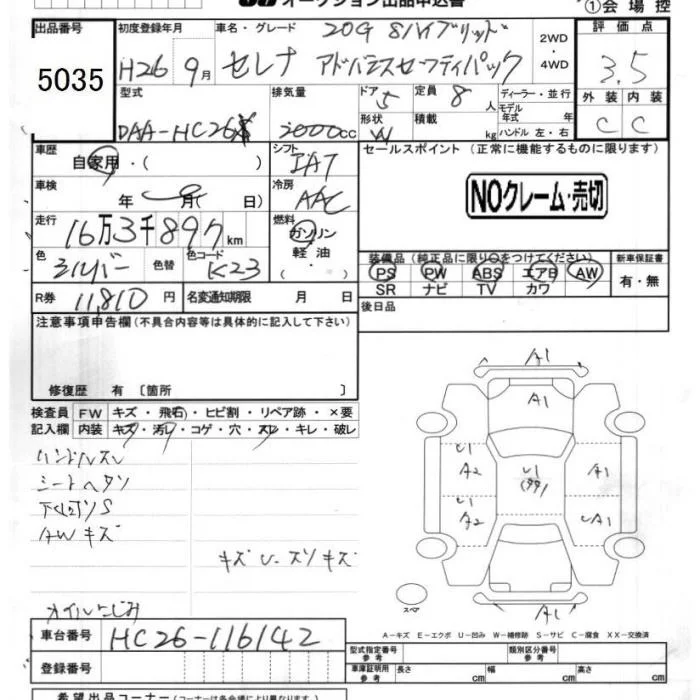 オークション出品申込書
①会場控
出品番号 5035
初度登録年月 H26 9月
車名・グレード 20G Sハイブリッド
セレナ アドバンスセーフティパック
2WD・4WD
評価点 3.5
外装 内装
C C
型式 DAA-HC26
排気量 2000cc
ドア 5 形状 W
定員 8人
積載 kg
ディーラー・並行
モデル年式 年
ハンドル 左・右
車歴 自家用・( )
シフト IAT
車検 年 月( 日)
冷房 AAC
走行 16万3千897km
燃料 ガソリン 軽油 ・( )
色 シルバー 色替 色コード K23
R券 11,810円 名変通知期限 月 日
セールスポイント (正常に機能するものに限ります)
NOクレーム・売切
装備品(純正品に限り○をつけてください) 新車保証書
PS PW ABS エアB AW 有・無
SR ナビ TV カワ
後日品
注意事項申告欄(不具合内容等は具体的に記入して下さい)
修復歴 有 [箇所 ]
検査員記入欄 FW キズ・飛石・ヒビ割・リペア跡・×要
内装 キズ・汚レ・コゲ・穴・スレ・キレ・破レ
ハンドルスレ
シートヘタリ
下回リS
AWキズ
キズ U・スリキズ
オイルにじみ
A1
A1
U1 A2
U1
A1
U1 A2
UA1
A1
スペア
A−キズ E−エクボ U−凹み W−補修跡 S−サビ C−腐食 XX−交換済
車台番号 HC26-116142
登録番号
型式指定番号 参考 類別区分番号 参考
車庫証明用 参考 長さ cm 幅 cm 高さ cm
希望出品コーナー(コーナーは各会場により異なります)